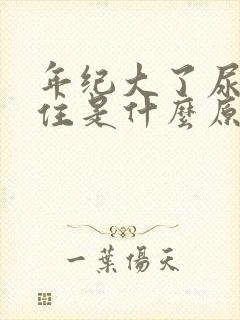 年纪大了尿
住是什麼原
一葉傷天